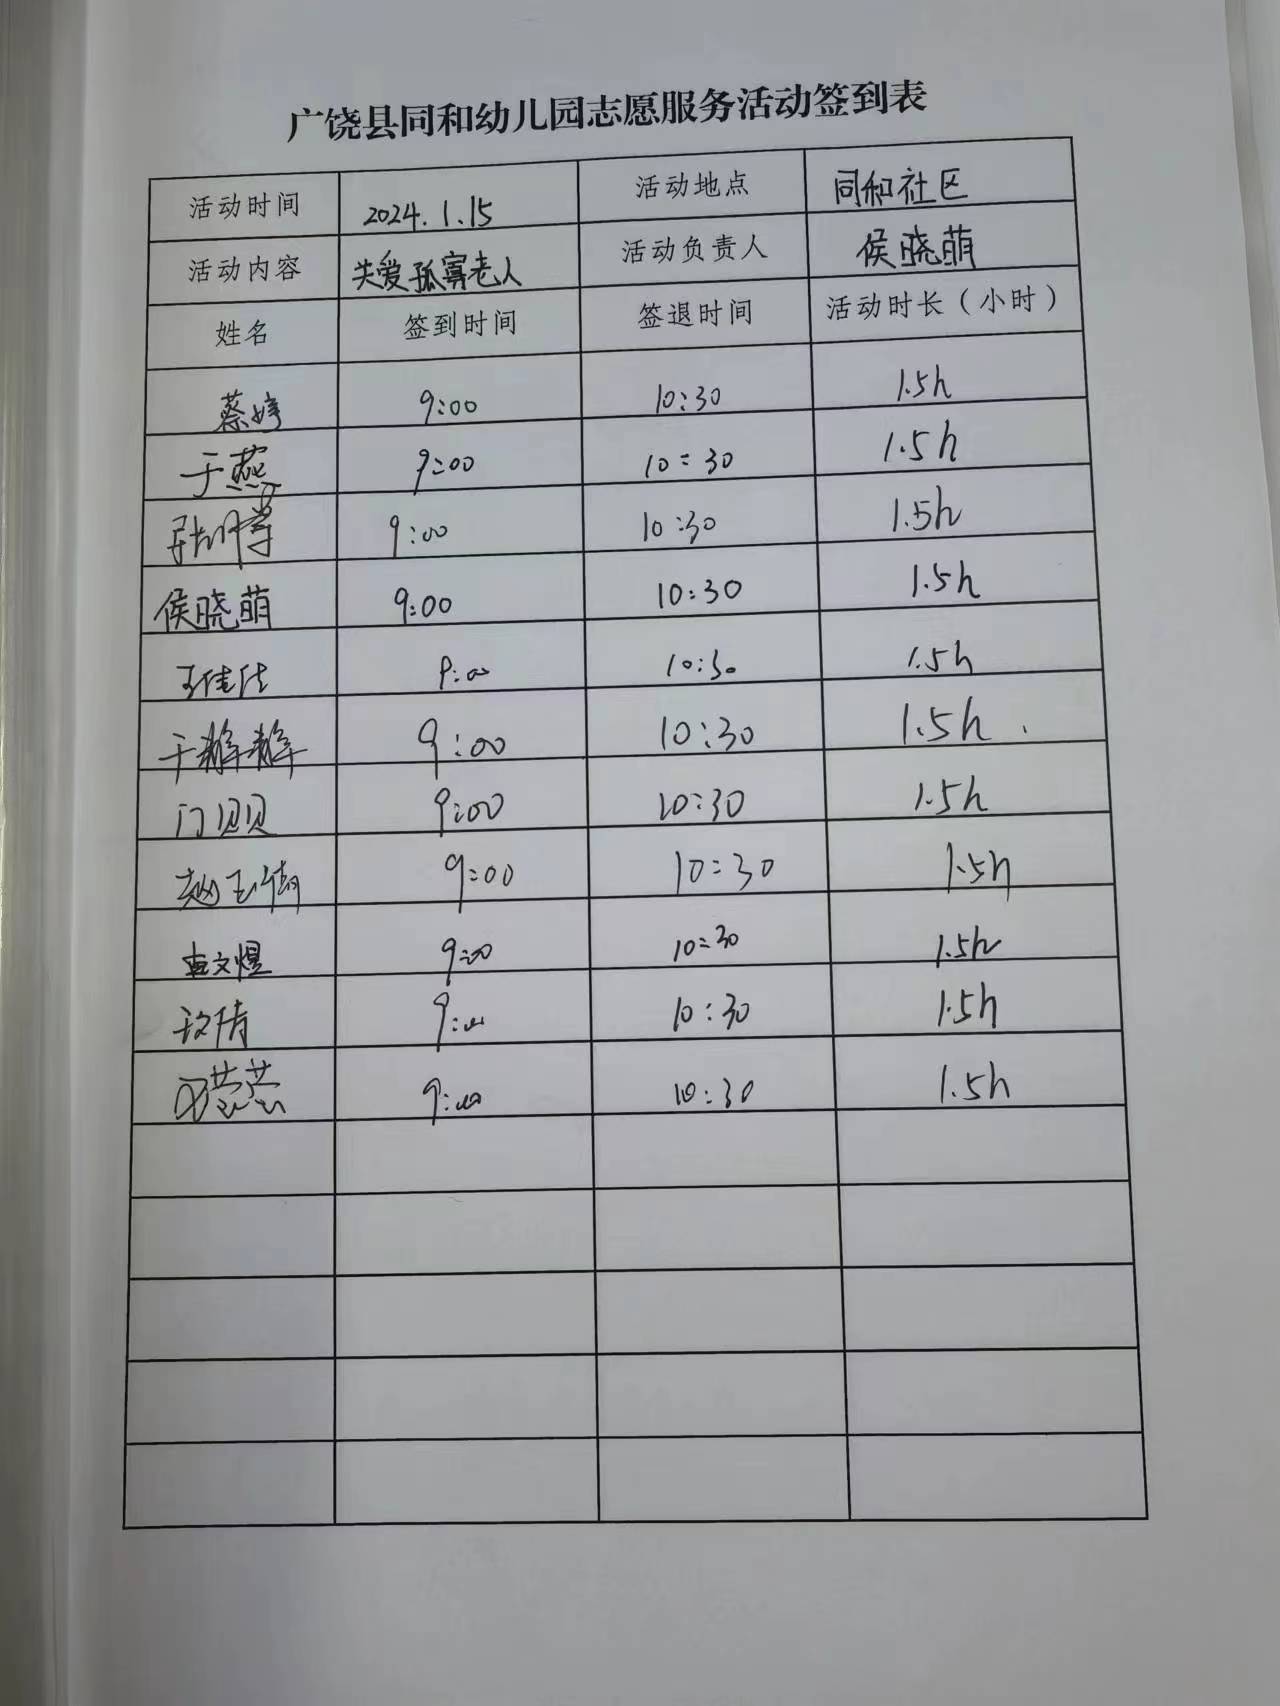 广饶县同和幼儿园志愿服务活动签到表
活动时间 2024.1.15 活动地点 同和社区
活动内容 关爱孤寡老人 活动负责人 侯晓萌
姓名 签到时间 签退时间 活动时长（小时）
蔡婷 9:00 10:30 1.5h
于燕 9:00 10:30 1.5h
9:00 10:30 1.5h
侯晓萌 9:00 10:30 1.5h
王佳佳 9:00 10:30 1.5h
于 9:00 10:30 1.5h
门贝贝 9:00 10:30 1.5h
赵玉倩 9:00 10:30 1.5h
文煜 9:00 10:30 1.5h
9:00 10:30 1.5h
9:00 10:30 1.5h